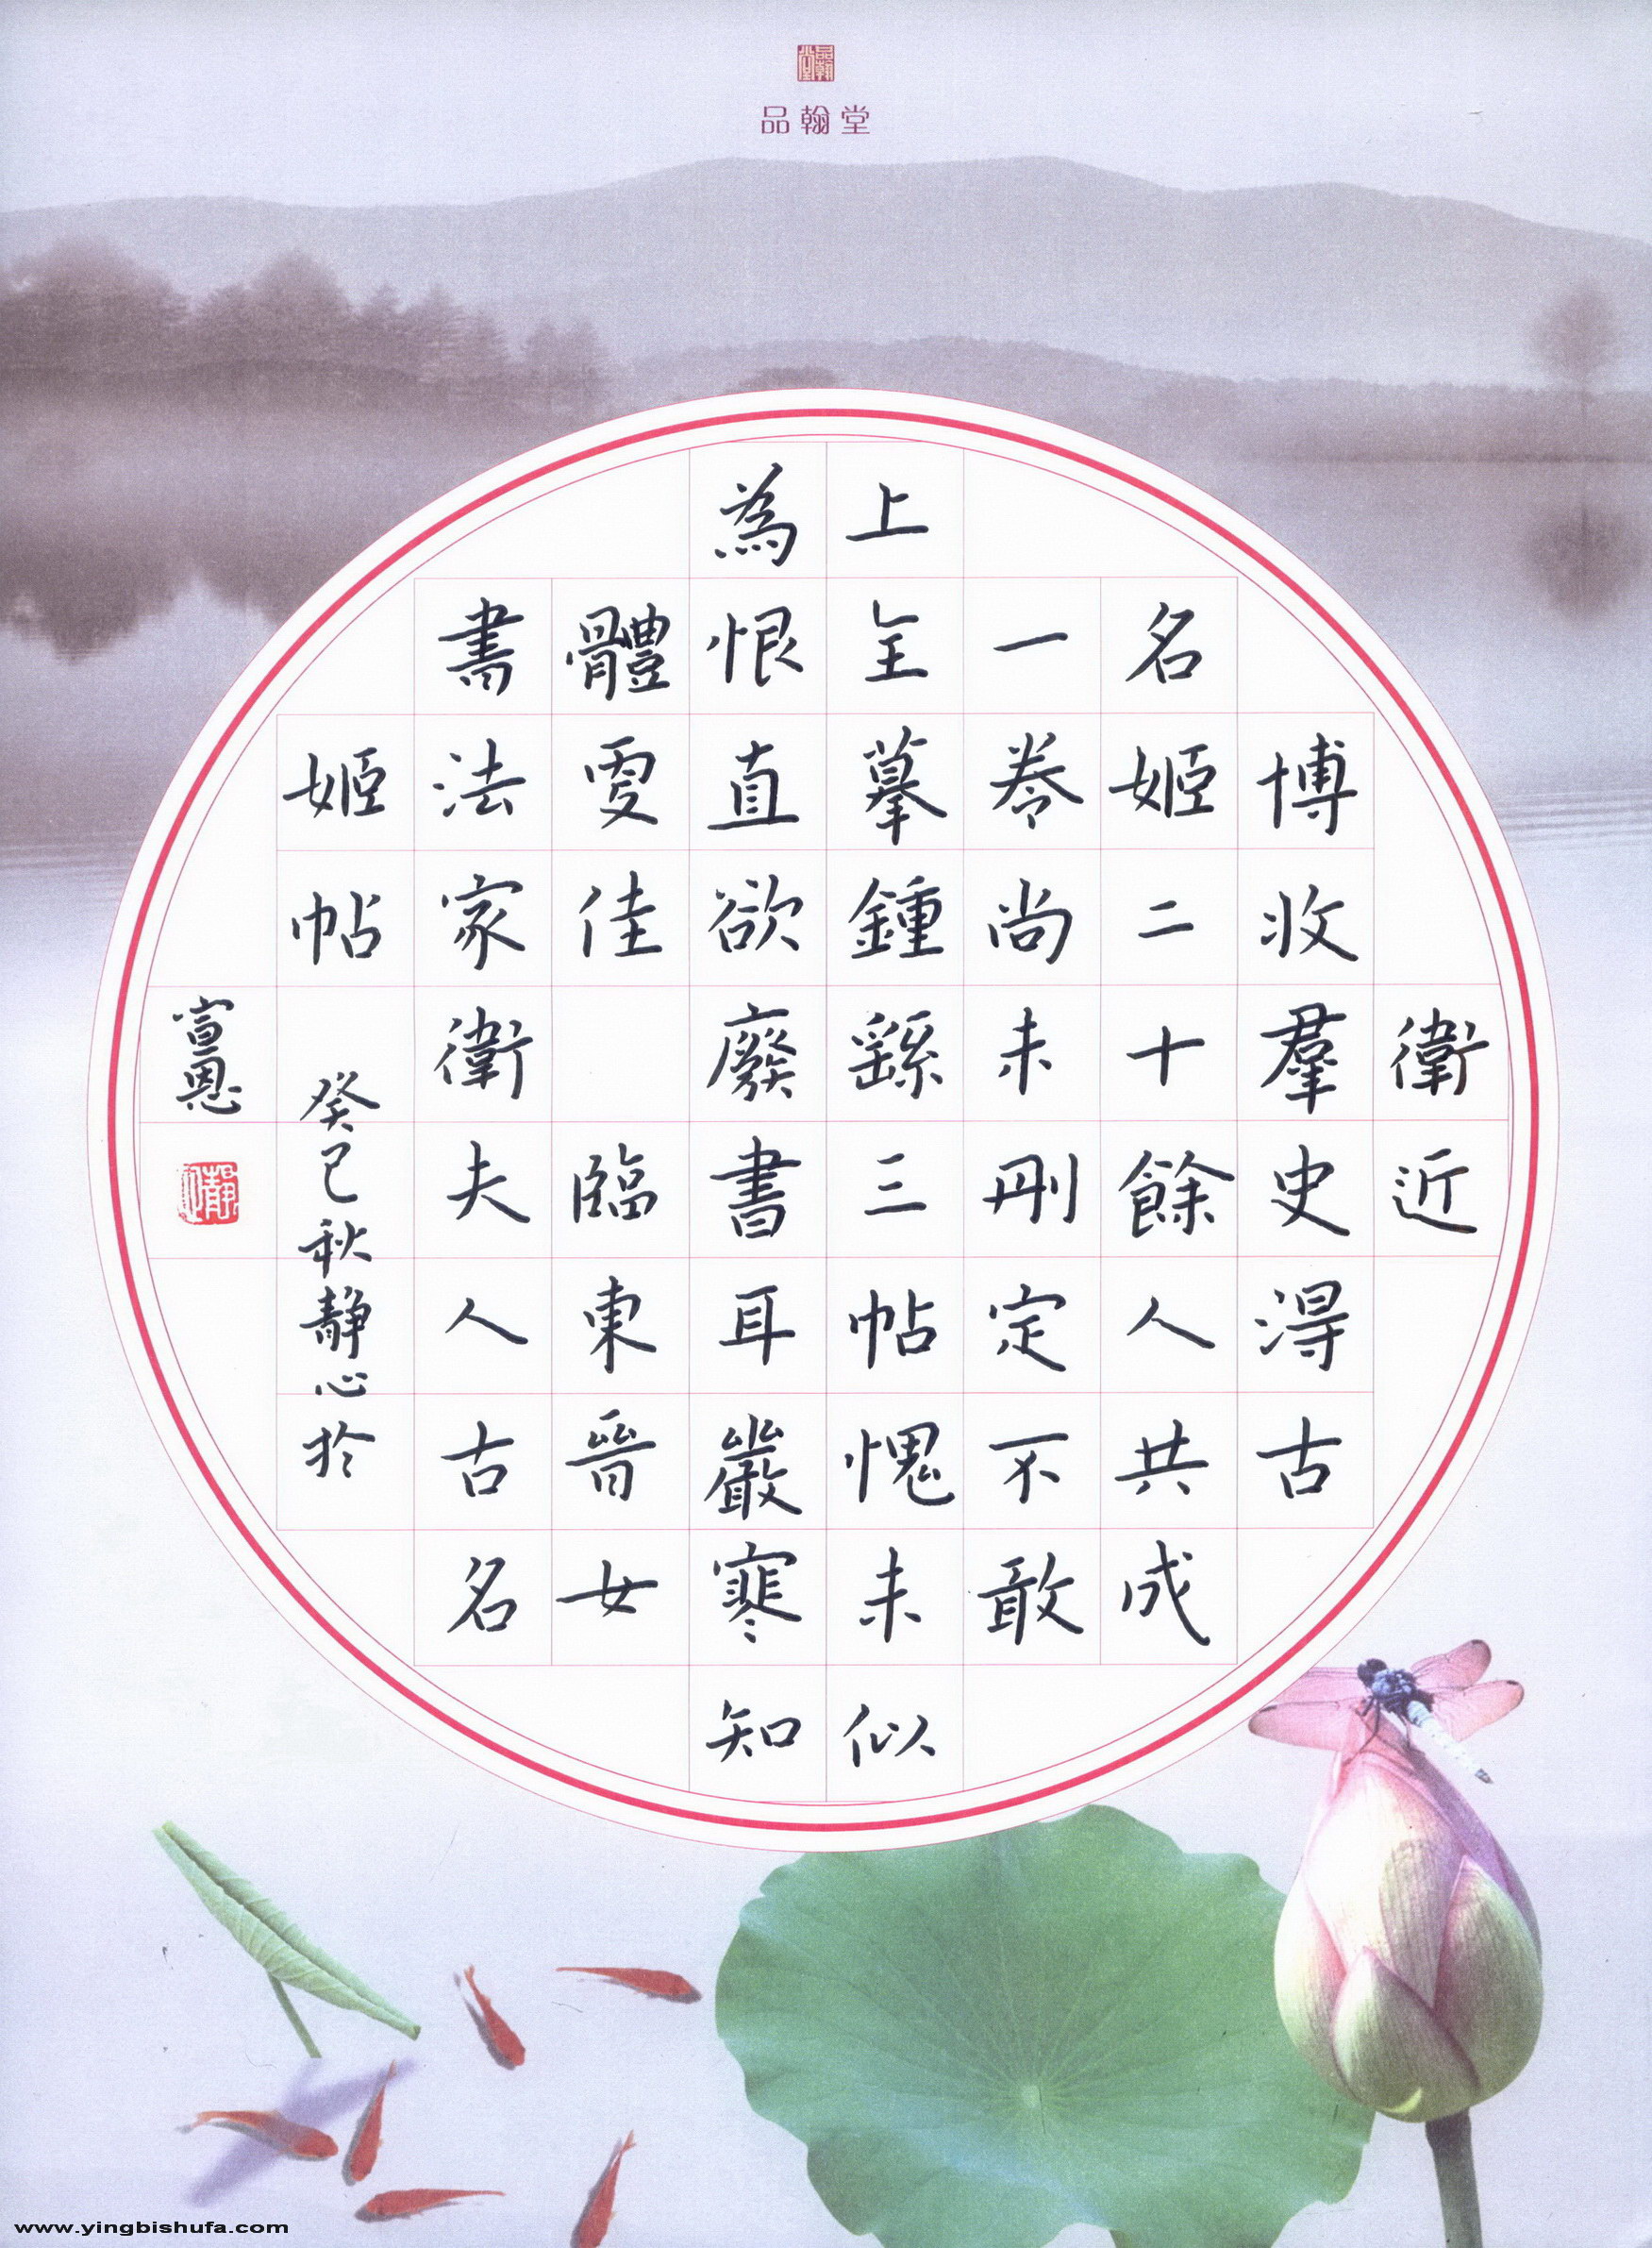 品翰堂
品翰堂
衛近
博收羣史得古
名姬二十餘人共成
一卷尚未刪定不敢
上全摹鍾繇三帖愧未似
為恨直欲廢書耳嚴寒知
體佳 臨東晉女
書法家衛夫人古名
姬帖 癸巳秋靜心於
宣恩
www.yingbishufa.com